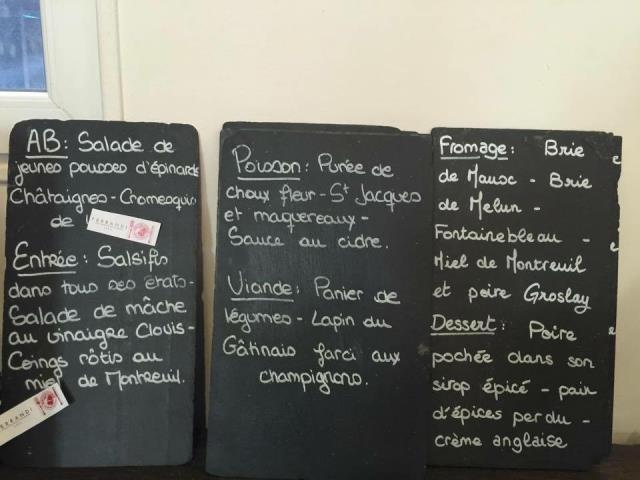 AB: Salade de
jeunes pousses d'épinards
Châtaignes - Cromesquis
de
FERRANDI
Entrée: Salsifis
dans tous ses états -
Salade de mâche
au vinaigre Clovis -
Coings rôtis au
miel de Montreuil.
FERRANDI
Poisson: Purée de
choux fleur - St Jacques
et maquereaux -
Sauce au cidre.
Viande: Panier de
légumes - Lapin du
Gâtinais farci aux
champignons.
Fromage: Brie
de Mausc - Brie
de Melun -
Fontainebleau -
Miel de Montreuil
et poire Groslay
Dessert: Poire
pochée dans son
sirop épicé - pain
d'épices perdu -
crème anglaise